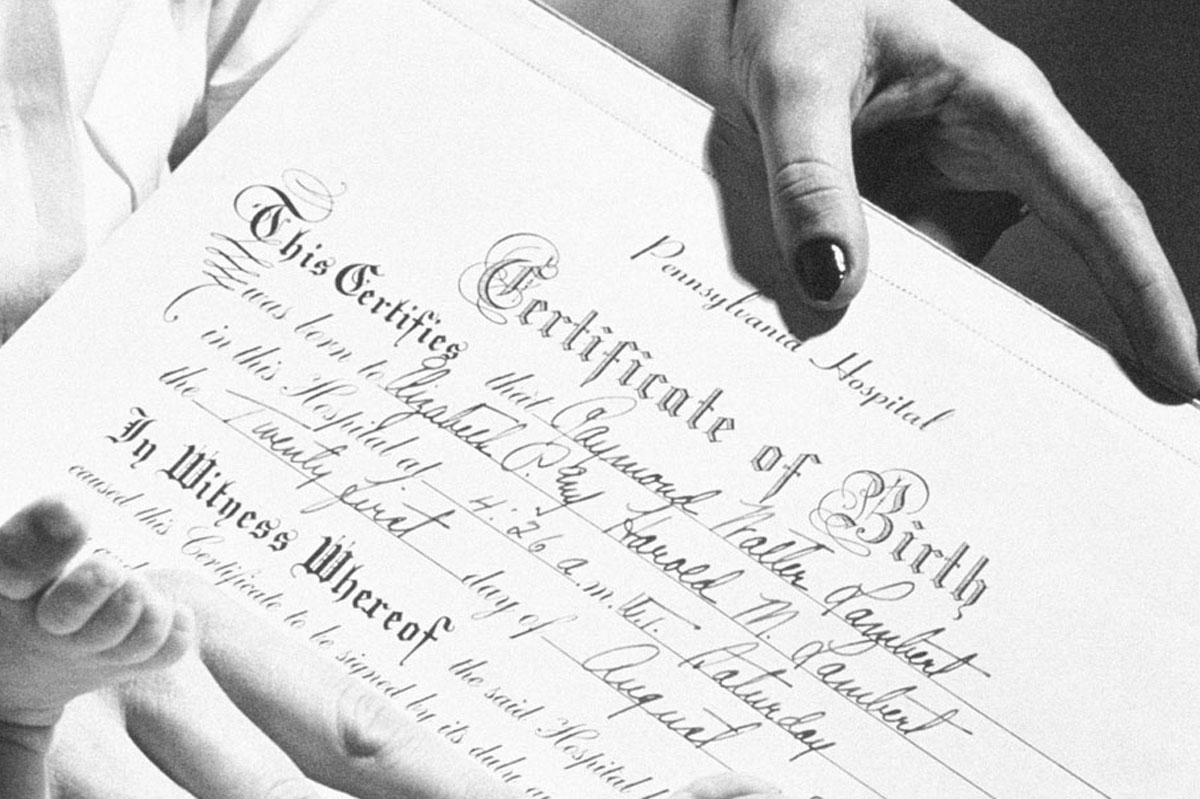 Pennsylvania Hospital
Certificate of Birth
This Certifies that Raymond Walter Lambert
was born to Elizabeth P. & Harold M. Lambert
in this Hospital at 4:26 a.m. Saturday
the Twenty first day of August
In Witness Whereof the said Hospital
caused this Certificate to be signed by its duly